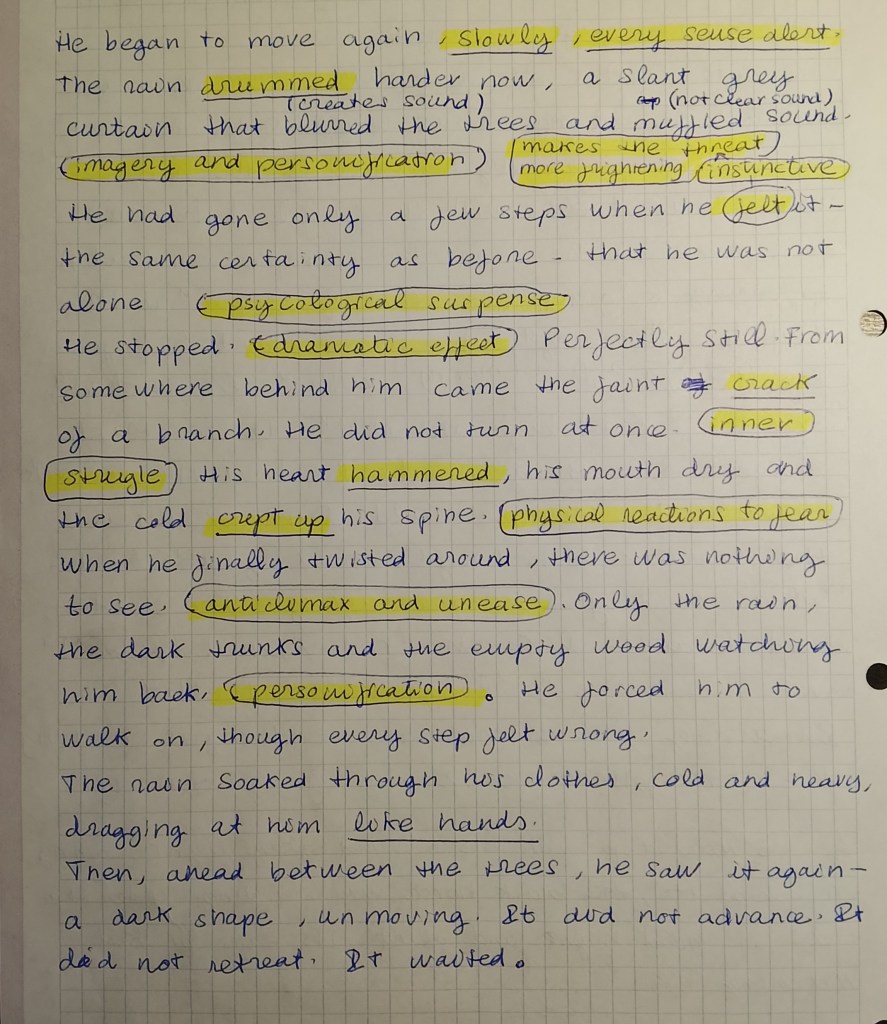 He began to move again, slowly, every sense alert.
The rain drummed harder now, a slant grey
(creates sound) (not clear sound)
curtain that blurred the trees and muffled sound.
(imagery and personification) (makes the threat)
more frightening (instinctive)
He had gone only a few steps when he felt it -
the same certainty as before - that he was not
alone (psycological suspense)
He stopped. (dramatic effect) Perfectly still. From
somewhere behind him came the faint crack
of a branch. He did not turn at once. (inner
strugle) His heart hammered, his mouth dry and
the cold crept up his spine. (physical reactions to fear)
When he finally twisted around, there was nothing
to see. (anticlimax and unease). Only the rain,
the dark trunks and the empty wood watching
him back. (personification). He forced him to
walk on, though every step felt wrong.
The rain soaked through his clothes, cold and heavy,
dragging at him like hands.
Then, ahead between the trees, he saw it again -
a dark shape, unmoving. It did not advance. It
did not retreat. It waited.